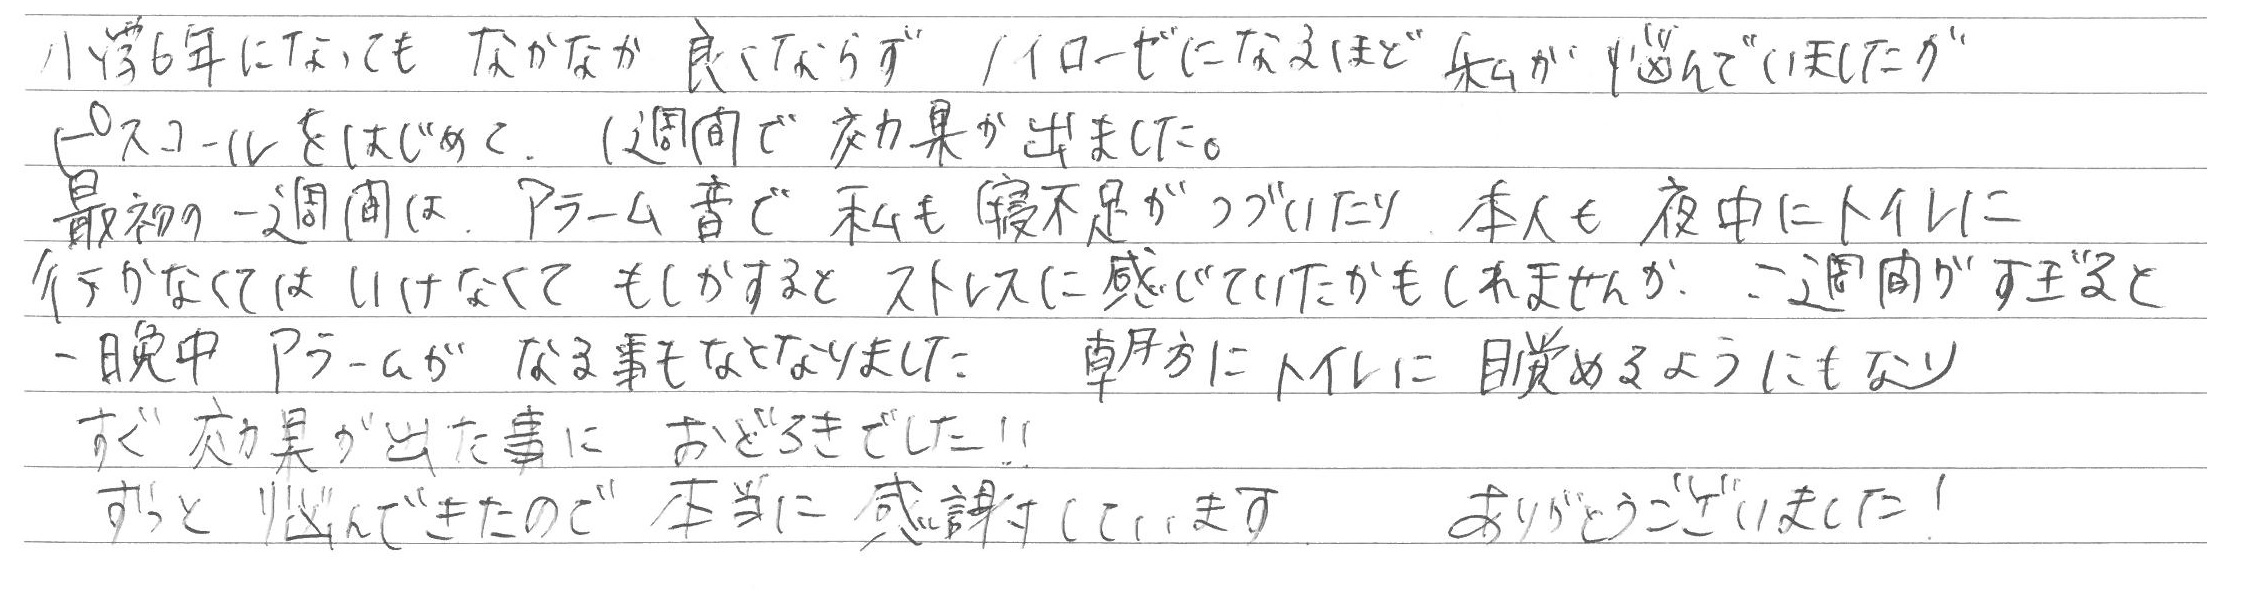 小学6年になっても なかなか 良くならず ノイローゼになるほど 私が 悩んでいましたが
ピスコールをはじめて、1週間で 効果が出ました。
最初の一週間は、アラーム音で 私も寝不足がつづいたり、本人も 夜中にトイレに
行かなくてはいけなくて もしかすると ストレスに感じていたかもしれませんが、二週間がすぎると
一晩中 アラームが なる事もなくなりました 朝方にトイレに 目覚めるようにもなり
すぐ効果が出た事に おどろきでした!!
ずっと 悩んできたので 本当に 感謝しています ありがとうございました!